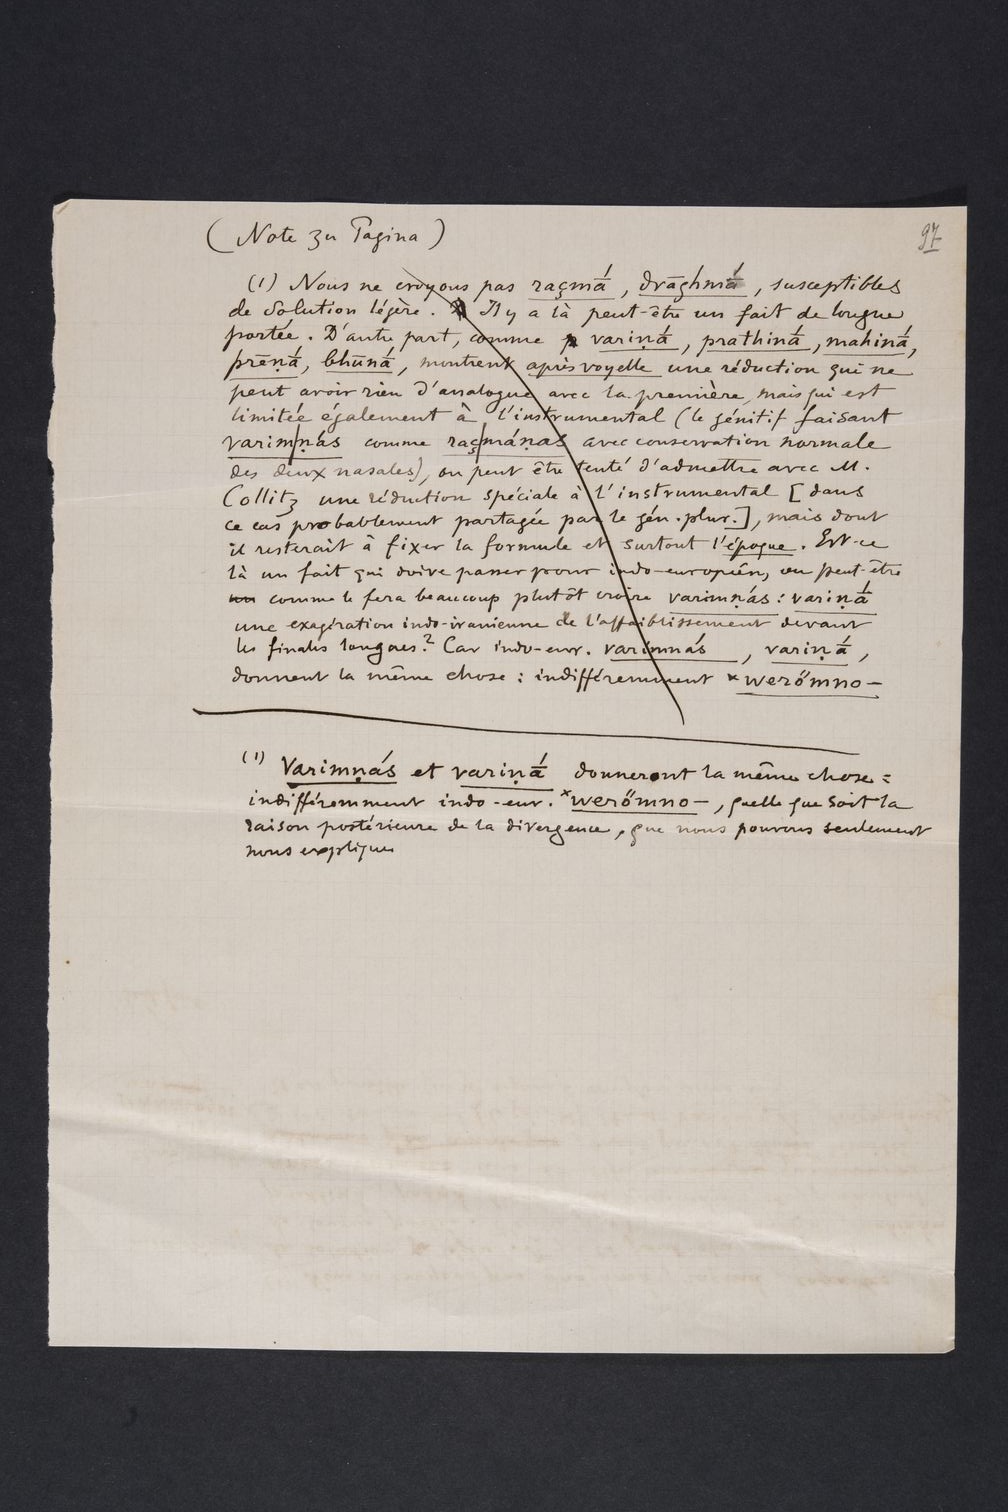 97
(Note zu Pagina)
(1) Nous ne croyons pas raçmā́, drāghmā́, susceptibles
de solution légère. Il y a là peut-être un fait de longue
portée. D'autre part, comme variṇā́, prathinā́, mahinā́,
prēṇā́, bhūnā́, montrent après voyelle une réduction qui ne
peut avoir rien d'analogue avec la première, mais qui est
limitée également à l'instrumental (le génitif faisant
varimṇas comme raçmáṇas avec conservation normale
des deux nasales), on peut être tenté d'admettre avec M.
Collitz une réduction spéciale à l'instrumental [dans
ce cas probablement partagée par le gén. plur.], mais dont
il resterait à fixer la formule et surtout l'époque. Est-ce
là un fait qui doive passer pour indo-européen, ou peut-être
comme le fera beaucoup plutôt croire varimṇás : variṇā́
une exagération indo-iranienne de l'affaiblissement devant
les finales longues? Car indo-eur. varimnás, variṇā́,
donnent la même chose : indifféremment *werŏ́mno-
(1) Varimṇás et variṇā́ donneront la même chose =
indifféremment indo-eur. *werŏ́mno-, quelle que soit la
raison postérieure de la divergence, que nous pouvons seulement
nous expliquer